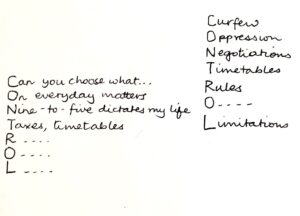 Can you choose what...
On everyday matters
Nine-to-five dictates my life
Taxes, timetables
R ....
O ....
L ....
Curfew
Oppression
Negotiations
Timetables
Rules
O - - - -
Limitations